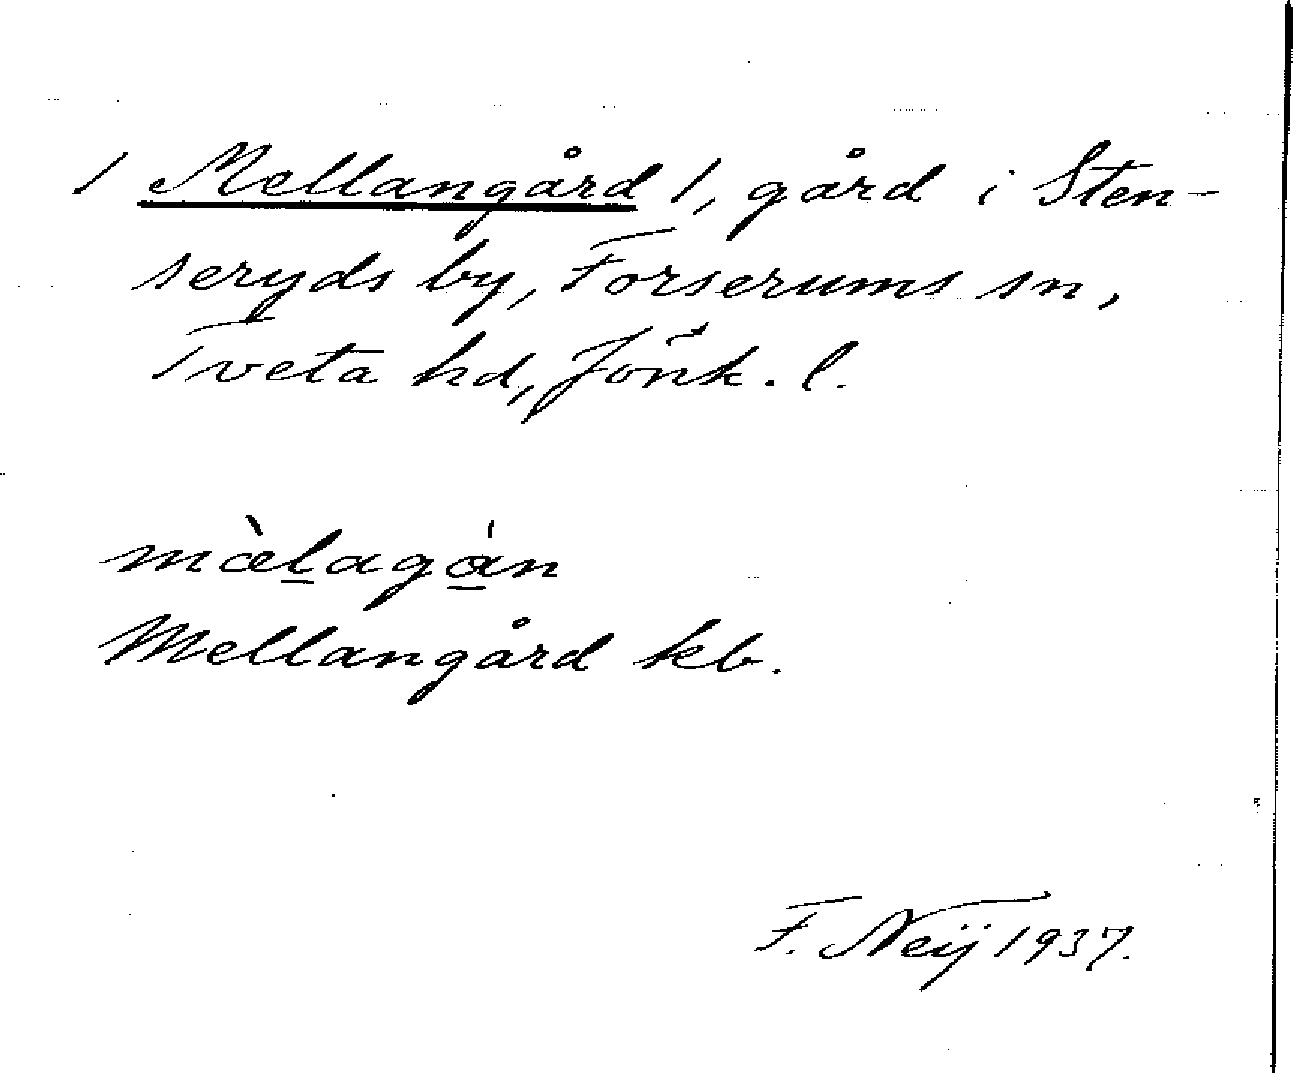 / Mellangård /, gård i Sten-
seryds by, Forserums sn,
Tveta hd, Jönk. l.
mæ̀l̲agá̲n
Mellangård kb.
F. Neij 1937.